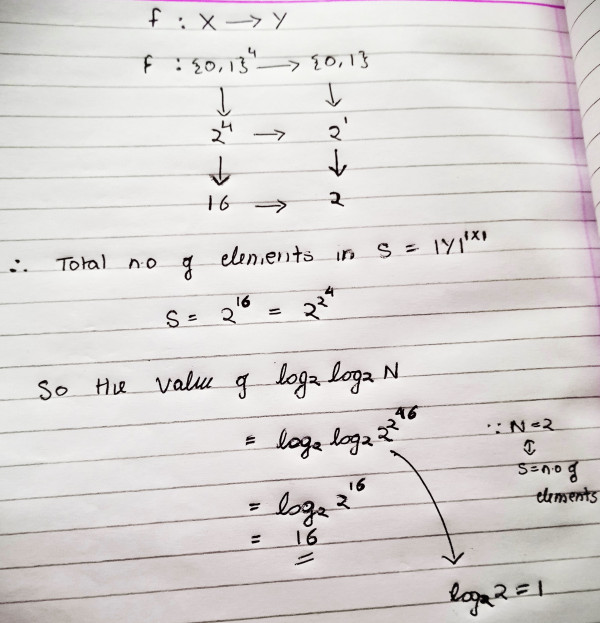 f : X → Y
f : {0,1}⁴ → {0,1}
↓ ↓
2⁴ → 2¹
↓ ↓
16 → 2
∴ Total no of elements in S = |Y|^|X|
S = 2^16 = 2^2^4
So the value of log₂ log₂ N
= log₂ log₂ 2^2^16
∵ N = 2
⇕
S = no of
elements
= log₂ 2^16
= 16
log₂ 2 = 1